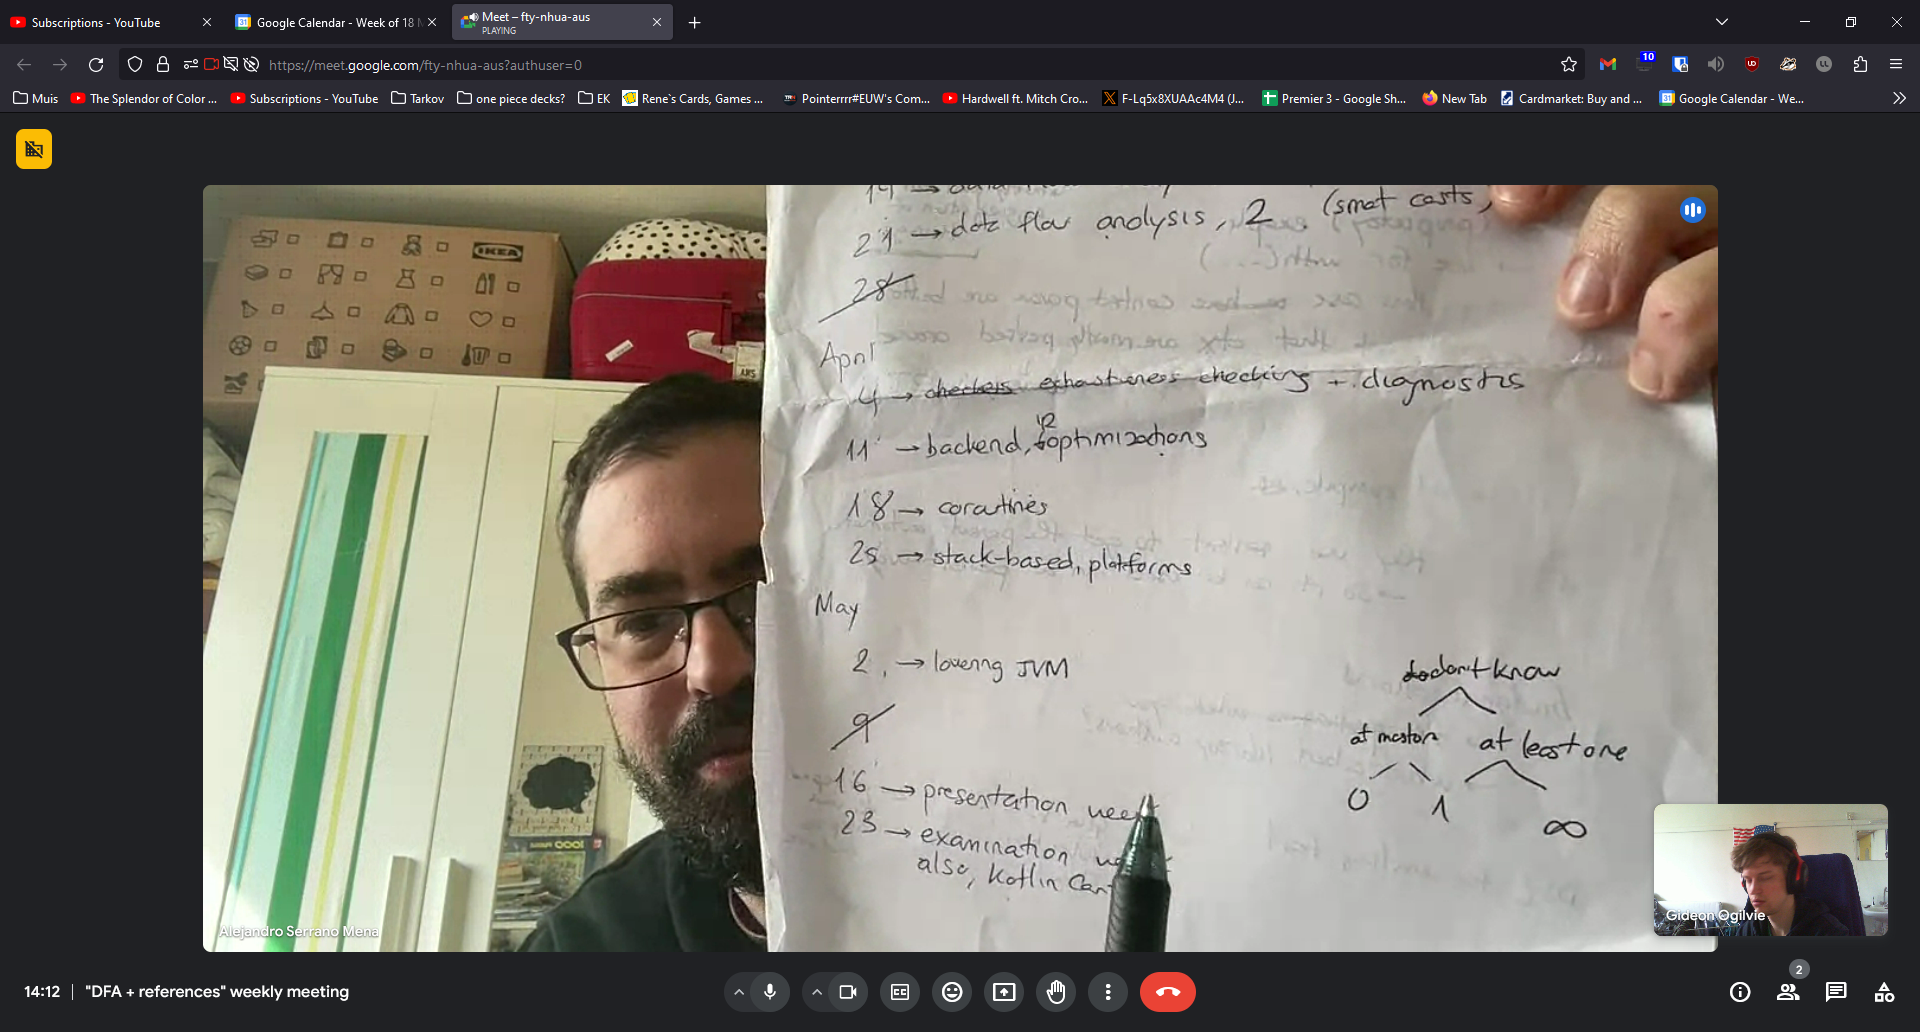 Subscriptions - YouTube
Google Calendar - Week of 18 M
Meet – fty-nhua-aus
PLAYING
https://meet.google.com/fty-nhua-aus?authuser=0
10
Muis
The Splendor of Color ...
Subscriptions - YouTube
Tarkov
one piece decks?
EK
Rene`s Cards, Games ...
Pointerrrr#EUW's Com...
Hardwell ft. Mitch Cro...
F-Lq5x8XUAAc4M4 (J...
Premier 3 - Google Sh...
New Tab
Cardmarket: Buy and ...
Google Calendar - We...
IKEA
21 → data flow analysis, 2 (smart casts,
28
April
4 → checkers exhaustiveness checking + diagnostics
11 → backend, IR optimizations
18 → coroutines
25 → stack-based, platforms
May
2 → lowering JVM
9
16 → presentation week
23 → examination
also, Kotlin
don't know
at most one
at least one
0
1
∞
Alejandro Serrano Mena
Gideon Ogilvie
14:12
"DFA + references" weekly meeting
2